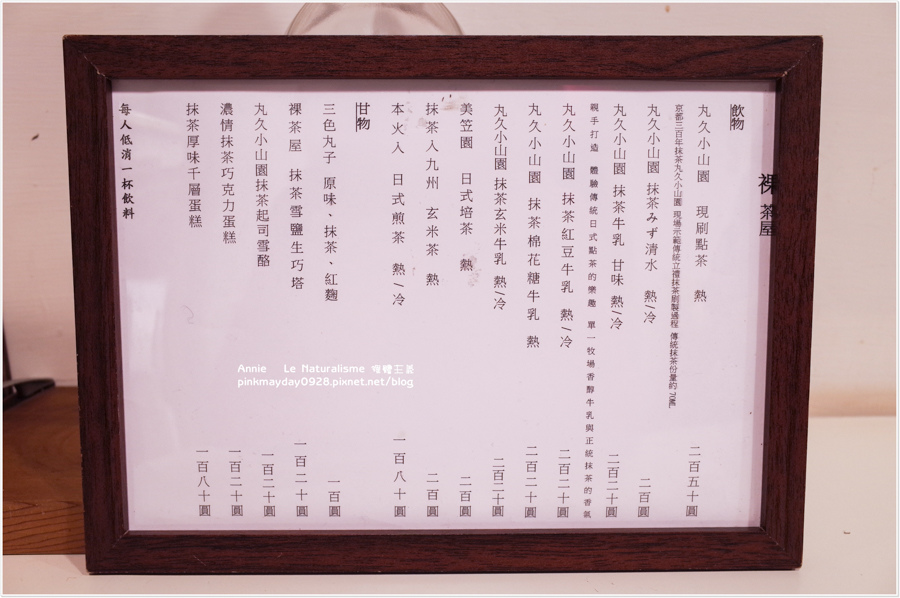 裸 茶屋
飲物
丸久小山園 現刷點茶 熱 二百五十圓
京都三百年抹茶丸久小山園 現場示範傳統立禮抹茶刷製過程 傳統抹茶份量約70ML
丸久小山園 抹茶みず清水 熱/冷 二百圓
丸久小山園 抹茶牛乳 甘味 熱/冷 二百二十圓
親手打造 體驗傳統日式點茶的樂趣 單一牧場香醇牛乳與正統抹茶的香氣
丸久小山園 抹茶紅豆牛乳 熱/冷 二百二十圓
丸久小山園 抹茶棉花糖牛乳 熱 二百二十圓
丸久小山園 抹茶玄米牛乳 熱/冷 二百二十圓
美笠園 日式培茶 熱 二百圓
抹茶入九州 玄米茶 熱 二百圓
本火入 日式煎茶 熱/冷 一百八十圓
甘物
三色丸子 原味、抹茶、紅麴 一百圓
裸茶屋 抹茶雪鹽生巧塔 一百二十圓
丸久小山園抹茶起司雪酪 一百二十圓
濃情抹茶巧克力蛋糕 一百二十圓
抹茶厚味千層蛋糕 一百八十圓
每人低消一杯飲料
Annie Le Maturalisme
pinkmayday0928.pixnet.net/blog